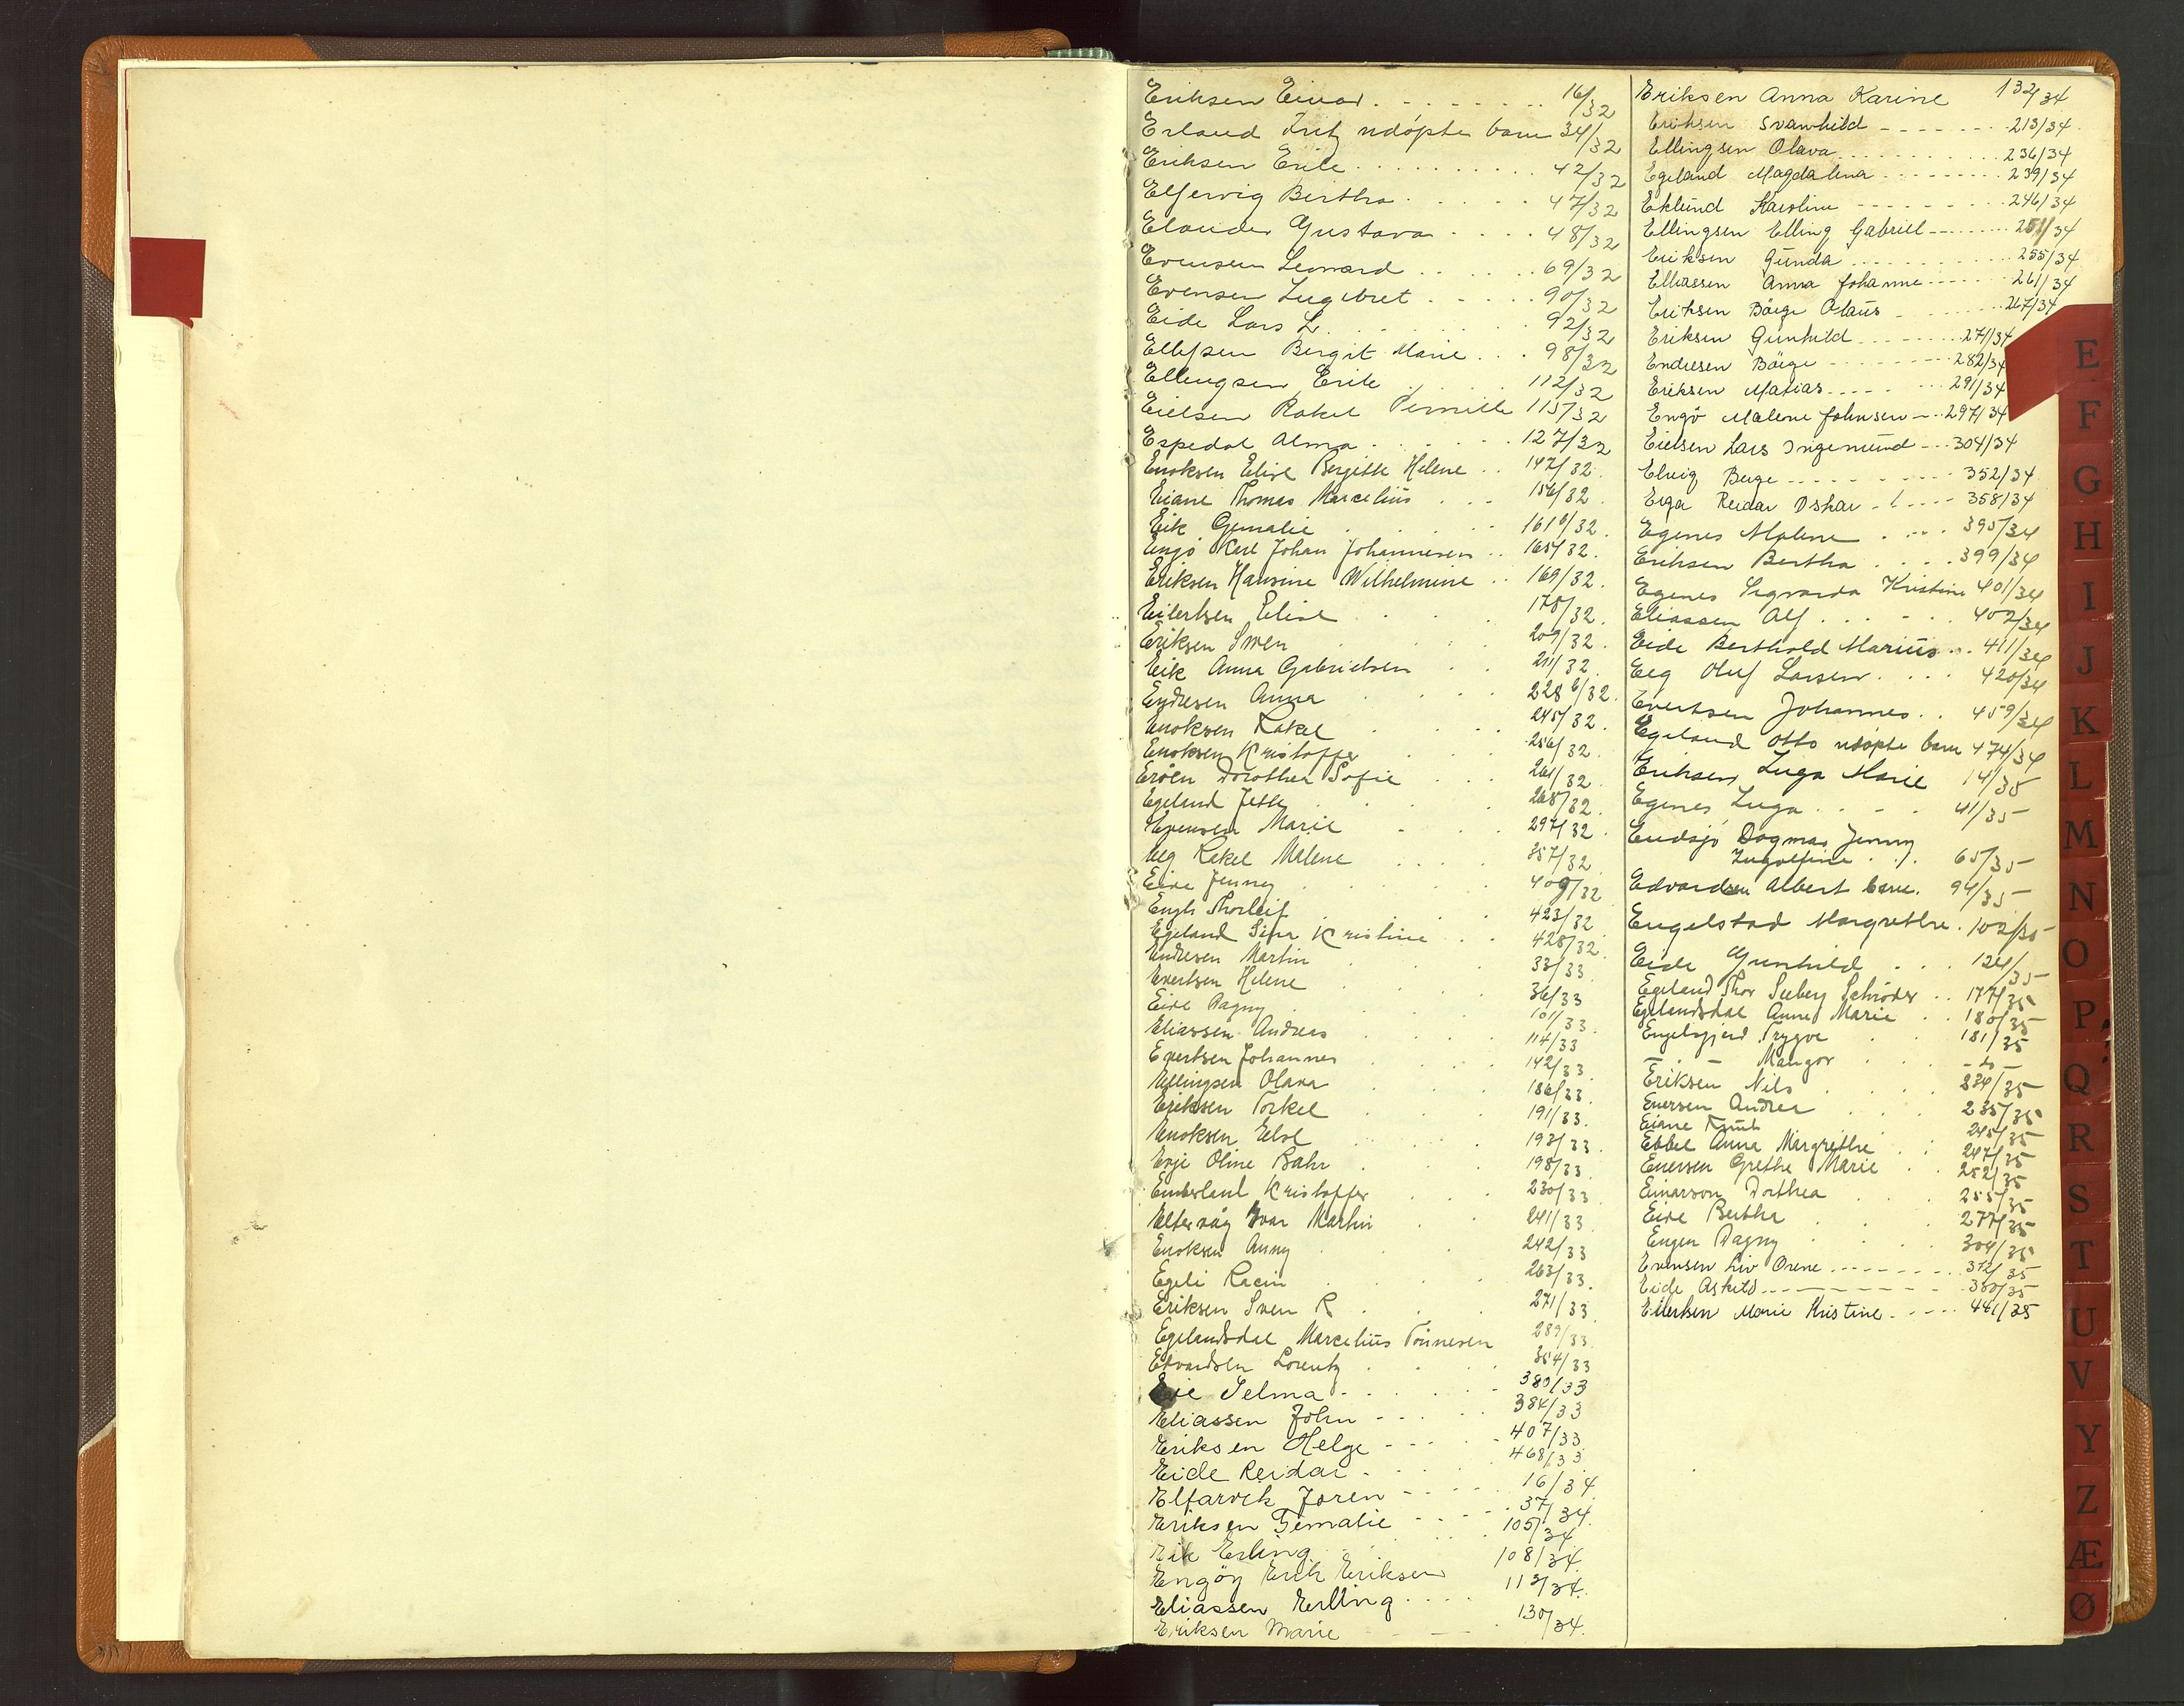 Eriksen Einar 16/32
Erland Fritz udöpte barn 34/32
Eriksen Erik 42/32
Elfervig Bertha 47/32
Elander Gustava 48/32
Evensen Leonard 69/32
Evensen Ingebret 90/32
Eide Lars L. 92/32
Ellefsen Bergit Marie 98/32
Ellingsen Erik 112/32
Eielsen Rakel Pernille 115/32
Espedal Alma 127/32
Enoksen Elise Bergitte Helene 147/32
Eiane Thomas Marcelius 156/32
Eik Gemalie 161 b/32
Engø Karl Johan Johannesen 165/32
Eriksen Hansine Wilhelmine 169/32
Eilertsen Elise 178/32
Eriksen Sven 209/32
Eik Anna Gabrielsen 211/32
Endresen Anna 228 b/32
Enoksen Rakel 245/32
Enoksen Kristoffer 256/32
Erøen Dorothea Sofie 261/32
Egeland Jette 268/32
Evensen Marie 297/32
Eeg Rakel Malene 357/32
Eide Jenny 409/32
Engh Thorleif 423/32
Egeland Sina Kristine 428/32
Endresen Martin 33/33
Evertsen Helene 36/33
Eide Dagny 101/33
Eliassen Andreas 114/33
Evertsen Johannes 142/33
Ellingsen Olava 186/33
Eriksen Torkel 191/33
Enoksen 193/33
Erje Oline Bahr 198/33
Emberland Kristoffer 230/33
Eltervåg Ivar Martin 241/33
Enoksen Anny 242/33
Egeli Racin 263/33
Eriksen Sven R 271/33
Egelandsdal Marcelius Tønnesen 289/33
Edvardsen Lorentz 354/33
Selma 380/33
Eliassen John 384/33
Eriksen Helge 407/33
Eide Reidar 468/33
Elfarvik Joren 16/34
Eriksen Gemalie 37/34
Eik Erling 105/34
Engöy Erik Eriksen 108/34
Eliassen Erling 113/34
Eriksen Marie 130/34
Eriksen Anna Karine 132/34
Eriksen Svanhild 213/34
Ellingsen Olava 236/34
Egeland Magdalena 239/34
Eklund Karoline 246/34
Ellingsen Elling Gabriel 251/34
Eriksen Gunda 255/34
Eliassen Anna Johanne 261/34
Eriksen Börge Olaus 267/34
Eriksen Gunhild 271/34
Endresen Börge 282/34
Eriksen Matias 291/34
Engö Malene Johnsen 297/34
Eielsen Lars Ingemund 304/34
Elvig Berge 352/34
Eiga Reidar Oskar 358/34
Egenes Malene 395/34
Eriksen Bertha 399/34
Egenes Sigvarda Kristine 401/34
Eliassen Alf 402/34
Eide Berthold Marius 411/34
Eeg Oluf Larsen 420/34
Evertsen Johannes 459/34
Egeland Otto udöpte barn 474/34
Eriksen Inga Marie 14/35
Egenes Inga 41/35
Endsjø Dagmar Jenny
Ingolfine 65/35
Edvardsen Albert barn 94/35
Engelstad Margrethe 102/35
Eide Gunhild 124/35
Egeland Thor Seeberg Schrøder 177/35
Egelandsdal Anne Marie 180/35
Engelsgjerd Trygve 181/35
– – Mangor – " –
Eriksen Nils 234/35
Enersen Andrea 235/35
Eiane Knut 245/35
Ebbel Anna Margrethe 247/35
Enersen Grethe Marie 252/35
Einarson Dorthea 255/35
Eide Bertha 277/35
Engen Dagny 304/35
Evensen Liv Orene 372/35
Eide Askild 380/35
Eilertsen Marie Kristine 441/35
E
F
G
H
I
J
K
L
M
N
O
P
Q
R
S
T
U
V
Y
Z
Æ
Ø